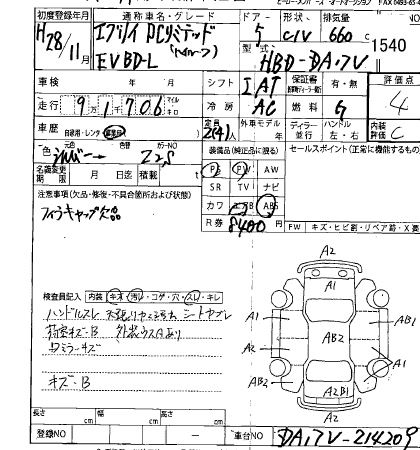 初度登録年月 通称車名・グレード ドアー 形状 排気量
H28/11月 エブリイ PCリミテッド 5 CIV 660cc 1540
EVBD-L 型式 HBD-DA17V
車検 年 月 シフト IAT 保証書 有・無 評価点
走行 9万1千706 マイル キロ 冷房 AC 燃料 G 4
車歴 自家用・レンタ 定員 2(4)人 外車モデル 年 ディーラー 並行 ハンドル 左・右 内装評価 C
色 シルバー 色替 カラーNO Z2S 装備品(純正品に限る) セールスポイント(正常に機能するもの)
名義変更期限 月 日迄 積載 t PS PW AW
注意事項(欠品・修復・不具合箇所および状態) SR TV ナビ
フィラキャップ欠品 カワ エアB ABS
R券 8400 円 FW キズ・ヒビ割・リペア跡・X
検査員記入 内装 キオ・汚レ・コゲ・穴・スレ・キレ
ハンドルスレ シートヨゴレ
荷室キズ・B 外装ウスAあり
ワミラーキズ
キズ・B
A2
A1
A1 AB1
A2 AB2 A2
AB2 A1
A2B1
A2
長さ cm 幅 cm 高さ cm
登録NO 車台NO DA17V-214209